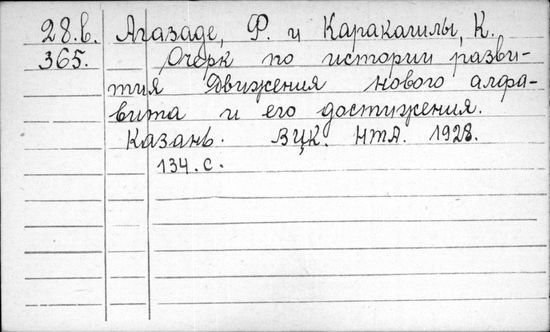 28.в. Агазаде, Ф. и Каракашлы, К.
365. Очерк по истории разви-
тия движения нового алфа-
вита и его достижения.
Казань. ВЦК. НТА. 1928.
134. с.